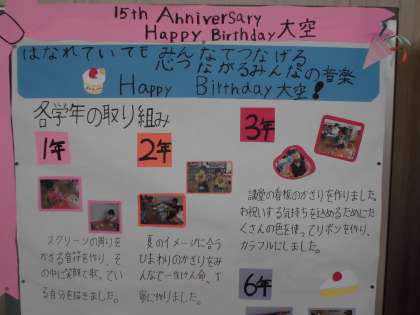 15th Anniversary
Happy Birthday 大空
はなれていても みんなでつなげる
心つながるみんなの音楽
Happy Birthday 大空!
各学年の取り組み
1年
スクリーンの周りを
かざる音符を作り、そ
の中に笑顔で歌っている
自分を描きました。
2年
夏のイメージに合う
ひまわりのかざりをみ
んなで一生けん命、丁
寧に作りました。
3年
講堂の看板のかざりを作りました。
お祝いする気持ちを込めるためにた
くさんの色を使ってリボンを作り、
カラフルにしました。
6年